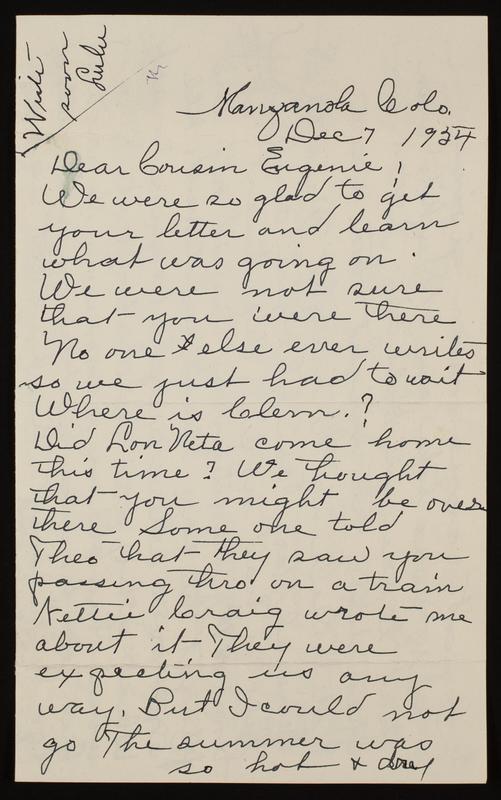 Write
soon
Lulu
Manzanola Colo.
Dec 7 1954
Dear Cousin Eugenie,
We were so glad to get
your letter and learn
what was going on.
We were not sure
that you were there
No one else ever writes
so we just had to wait
Where is Clem.?
Did Lon Neta come home
this time? We thought
that you might be over
there Some one told
Theo that they saw you
passing thro on a train
Nettie Craig wrote me
about it They were
expecting us any
way. But I could not
go The summer was
so hot & dry